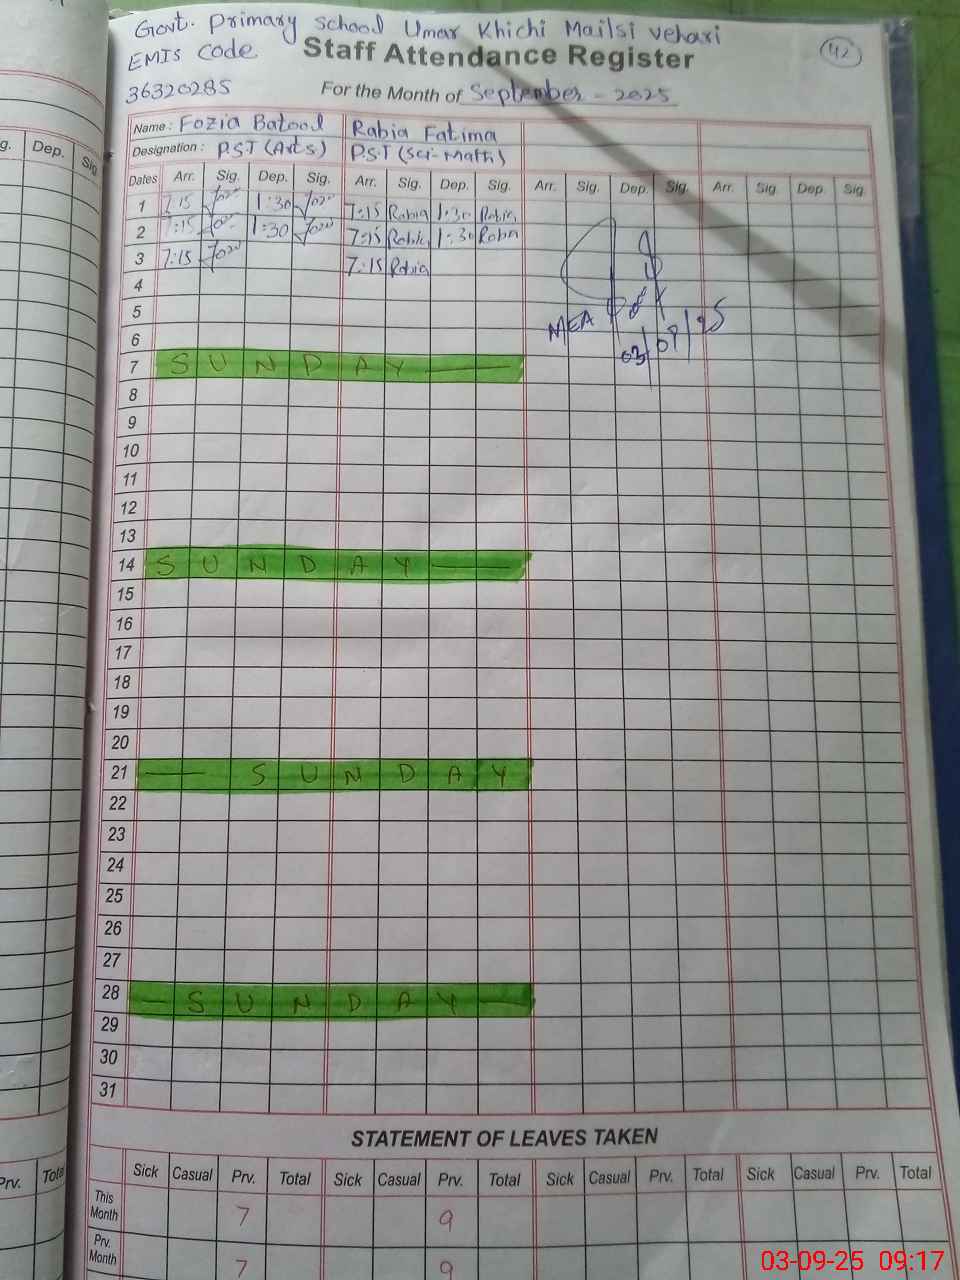 Govt. Primary School Umar Khichi Mailsi vehari
EMIS Code
Staff Attendance Register
42
36320285
For the Month of September - 2025
Name : Fozia Batool Rabia Fatima
Designation : P.S.T (Arts) P.S.T (Sci-Math)
Dates Arr. Sig. Dep. Sig. Arr. Sig. Dep. Sig. Arr. Sig. Dep. Sig. Arr. Sig Dep. Sig.
g. Dep. Sig
1 7:15 1:30 7:15 Rabia 1:30
2 7:15 1:30 7:15 1:30
3 7:15 7:15 Rabia
4
5
MEA
6
03/09/25
7 SUNDAY
8
9
10
11
12
13
14 SUNDAY
15
16
17
18
19
20
21 SUNDAY
22
23
24
25
26
27
28 SUNDAY
29
30
31
STATEMENT OF LEAVES TAKEN
Sick Casual Prv. Total Sick Casual Prv. Total Sick Casual Prv. Total Sick Casual Prv. Total
Prv. Total
This Month 7 9
Prv. Month 7 9
03-09-25 09:17